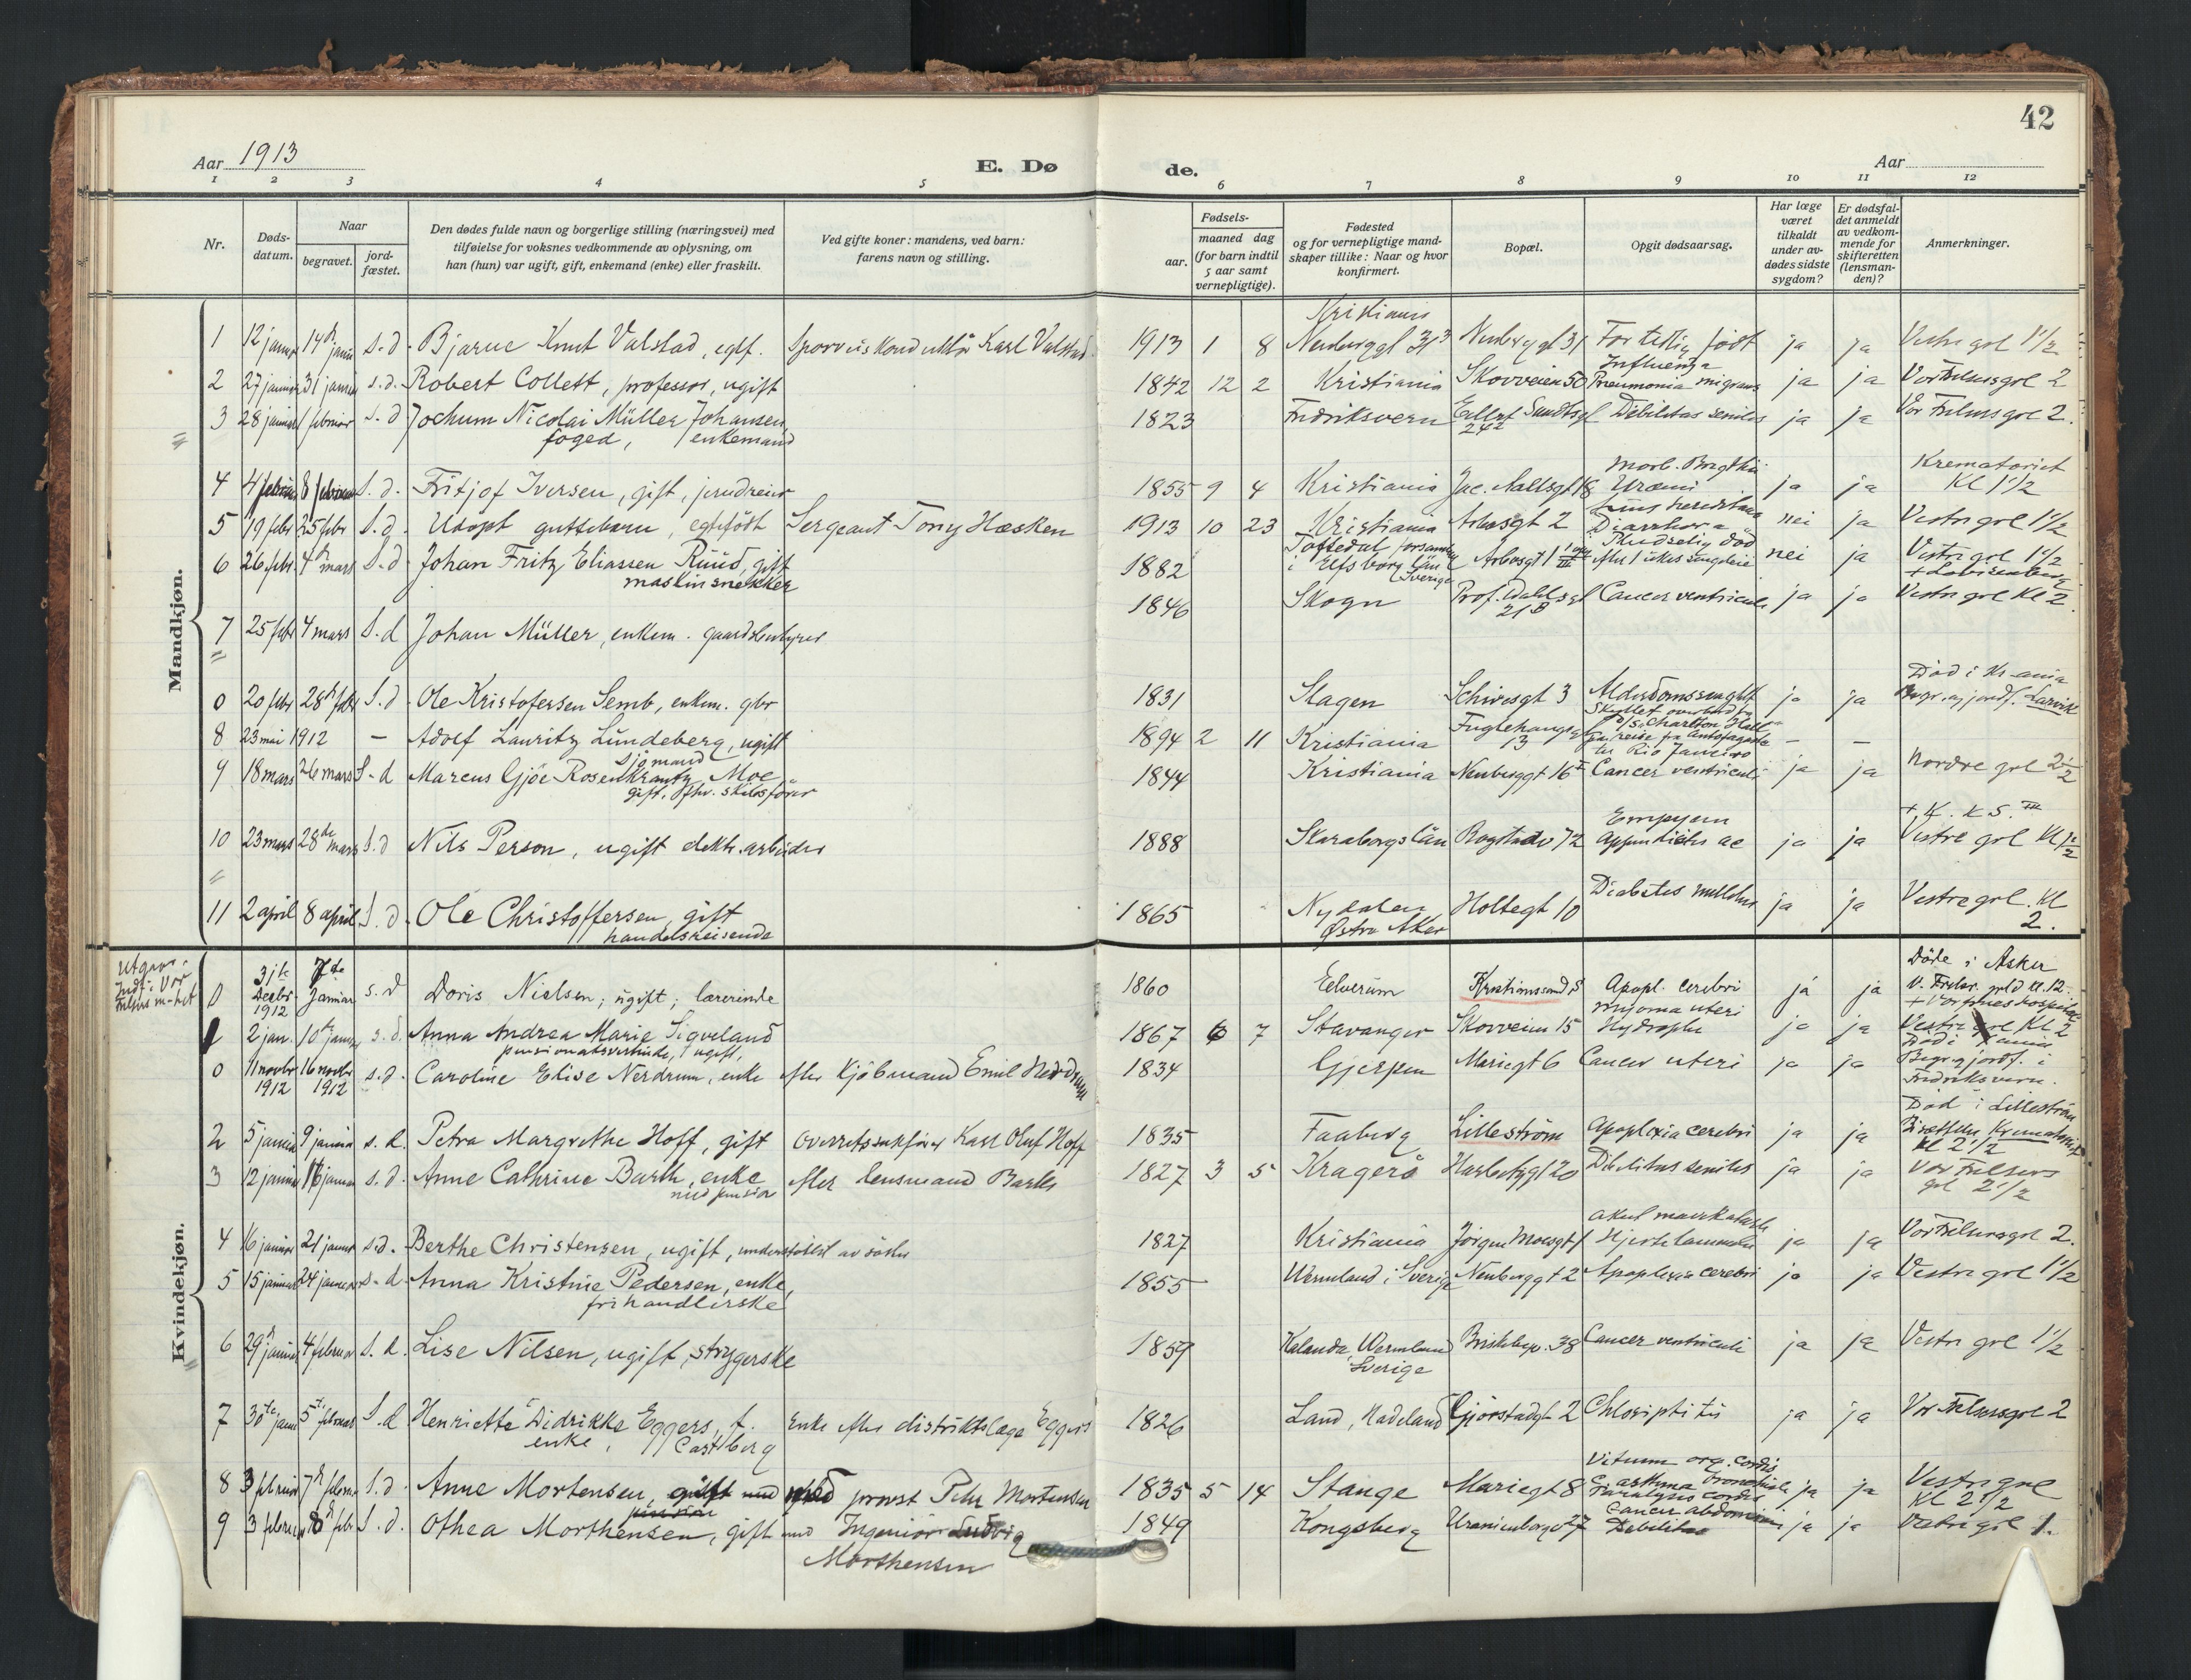 42
Aar 1913
E. Dø
de.
Aar
1 2 3 4 5 6 7 8 9 10 11 12
Nr.
Døds-
datum.
Naar
begravet.
jord-
fæstet.
Den dødes fulde navn og borgerlige stilling (næringsvei) med
tilføielse for voksnes vedkommende av oplysning, om
han (hun) var ugift, gift, enkemand (enke) eller fraskilt.
Ved gifte koner: mandens, ved barn:
farens navn og stilling.
Fødsels-
aar.
maaned dag
(for barn indtil
5 aar samt
vernepligtige).
Fødested
og for vernepligtige mand-
skaper tillike: Naar og hvor
konfirmert.
Bopæl.
Opgit dødsaarsag.
Har læge
været
tilkaldt
under av-
dødes sidste
sygdom?
Er dødsfal-
det anmeldt
av vedkom-
mende for
skifteretten
(lensman-
den)?
Anmerkninger.
Mandkjøn.
Kristiania
1 12 januar 14 januar s.d. Bjarne Knut Valstad, egtf. Sporveiskonduktør Karl Valstad 1913 1 8 Neuberggt 31 Neuberggt 31 For tidlig født ja ja Vestre grl 1 1/2
Influenza
2 27 januar 31 januar s.d. Robert Collett, professor, ugift 1842 12 2 Kristiania Skovveien 50 Pneumonia migrans ja ja Vor Frelsers grl 2
3 28 januar februar s.d. Jochum Nicolai Müller Johansen, 1823 Fredriksvern Eilert Sundtsgt Debilitas senilis ja ja Vor Frelsers grl 2.
foged, enkemand 24 2
Morb. Brigthii Krematoriet
4 4 februar 8 februar s.d. Fritjof Iversen, gift, 1855 9 4 Kristiania Jac. Aallsgt 18 Uræmi ja ja Kl 1 1/2
5 19 febr 25 febr s.d. Udøpt guttebarn, egtefødt Sergeant Tony Hæsken 1913 10 23 Kristiania Arbosgt 2 Diarrhoea nei ja Vestre grl 1 1/2
Pludselig død
6 26 febr 4 mars s.d. Johan Fritz Eliassen Ruud, gift 1882 i Elfsborg län Arbosgt 1 nei ja Vestre grl 1 1/2
maskinsnekker Sverige
7 25 febr 4 mars s.d. Johan Müller, enkem. gaardsbestyrer 1846 Skogn Prof. Dahlsgt Cancer ventriculi ja ja Vestre grl Kl 2.
21 B
Død i Kr.ania
0 20 febr 28 febr s.d. Ole Kristofersen Semb, enkem. gbr 1831 Slagen Schivesgt 3 ja ja Begr. og jordf. Larvik
8 23 mai 1912 — Adolf Lauritz Lundeberg, ugift 1894 2 11 Kristiania Fuglehauggt — —
sjømand 13 til Rio Janeiro
9 18 mars 26 mars s.d. Marcus Gjøe Rosenkrantz Moe 1844 Kristiania Neuberggt 16 I Cancer ventriculi ja ja Nordre grl 2 1/2
gift, fhv. skibsfører
Empyem
10 23 mars 28de mars s.d. Nils Person, ugift elektr. arbeider 1888 Skaraborgs län Bogstadv 72 Appendicitis ac ja ja Vestre grl Kl 1 1/2
11 2 april 8 april s.d. Ole Christoffersen, gift 1865 Nydalen Holtegt 10 Diabetes mellitus ja ja Vestre grl. Kl
handelsreisende Østre Aker 2.
Kvindekjøn.
Utgaar.
Indf. i Vor
Frelsers m-het
Døde i Asker
0 31te Decbr 1912 7de Januar s.d. Doris Nielsen, ugift, lærerinde 1860 Elverum Kristiansand S Apopl. cerebri ja ja V. Frelser. grld kl. 12.
Myoma uteri
1 2 jan. 10de januar s.d. Anna Andrea Marie Sigveland 1867 6 7 Stavanger Skovveien 15 ja ja Vestre grl Kl 2
pensionatsvertinde, ugift,
0 11 novbr 1912 16 novbr 1912 s.d. Caroline Elise Nerdrum, enke efter Kjøbmand Emil Nerdrum 1834 Gjerpen Mariegt 6 Cancer uteri ja ja Begr. og jordf. i
Fredriksvern.
Død i Lillestrøm
2 5 januar 9 januar s.d. Petra Margrethe Hoff, gift Overretssakfører Karl Oluf Hoff 1835 Faaberg Lillestrøm Apoplexia cerebri ja ja Bisættelse Krematoriet
Kl 2 1/2
3 12 januar 16 januar s.d. Anne Cathrine Barth, enke efter lensmand Barth 1827 3 5 Kragerø Harbitzgt 20 Debilitas senilis ja ja Vor Frelsers
med pension grl 2 1/2
4 16 januar 21 januar s.d. Berthe Christensen, ugift, understøttet av 1827 Kristiania Jørgen Moesgt 1 Hjertelammelse ja ja Vor Frelsers grl 2.
5 15 januar 24 januar s.d. Anna Kristine Pedersen, enke, 1855 Wermland i Sverige Neuberggt 2 Apoplexia cerebri ja ja Vestre grl 1 1/2
frihandlerske
6 29 januar 4 februar s.d. Lise Nilsen, ugift, strygerske 1859 Wermland Briskebyv. 38 Cancer ventriculi ja ja Vestre grl 1 1/2
Sverige
7 30te jan 5te februar s.d. Henriette Didrikke Eggers, f. Enke efter distriktslæge Eggers 1826 Land, Hadeland Gjørstadgt 2 ja ja Vor Frelsers grl 2
enke, Castberg
Vitium org. cordis
8 3 februar 7 februar s.d. Anne Mortensen, gift med provst Peter Mortensen 1835 5 14 Stange Mariegt 8 asthma bronchiale ja ja Vestre grl
pension Paralysis cordis Kl 2 1/2
Cancer abdominis
9 3 februar 8 febr s.d. Othea Morthensen, gift med Ingeniør Ludvig 1849 Kongsberg Uranienborgv 27 Debilitas ja ja Vestre grl 1.
Morthensen